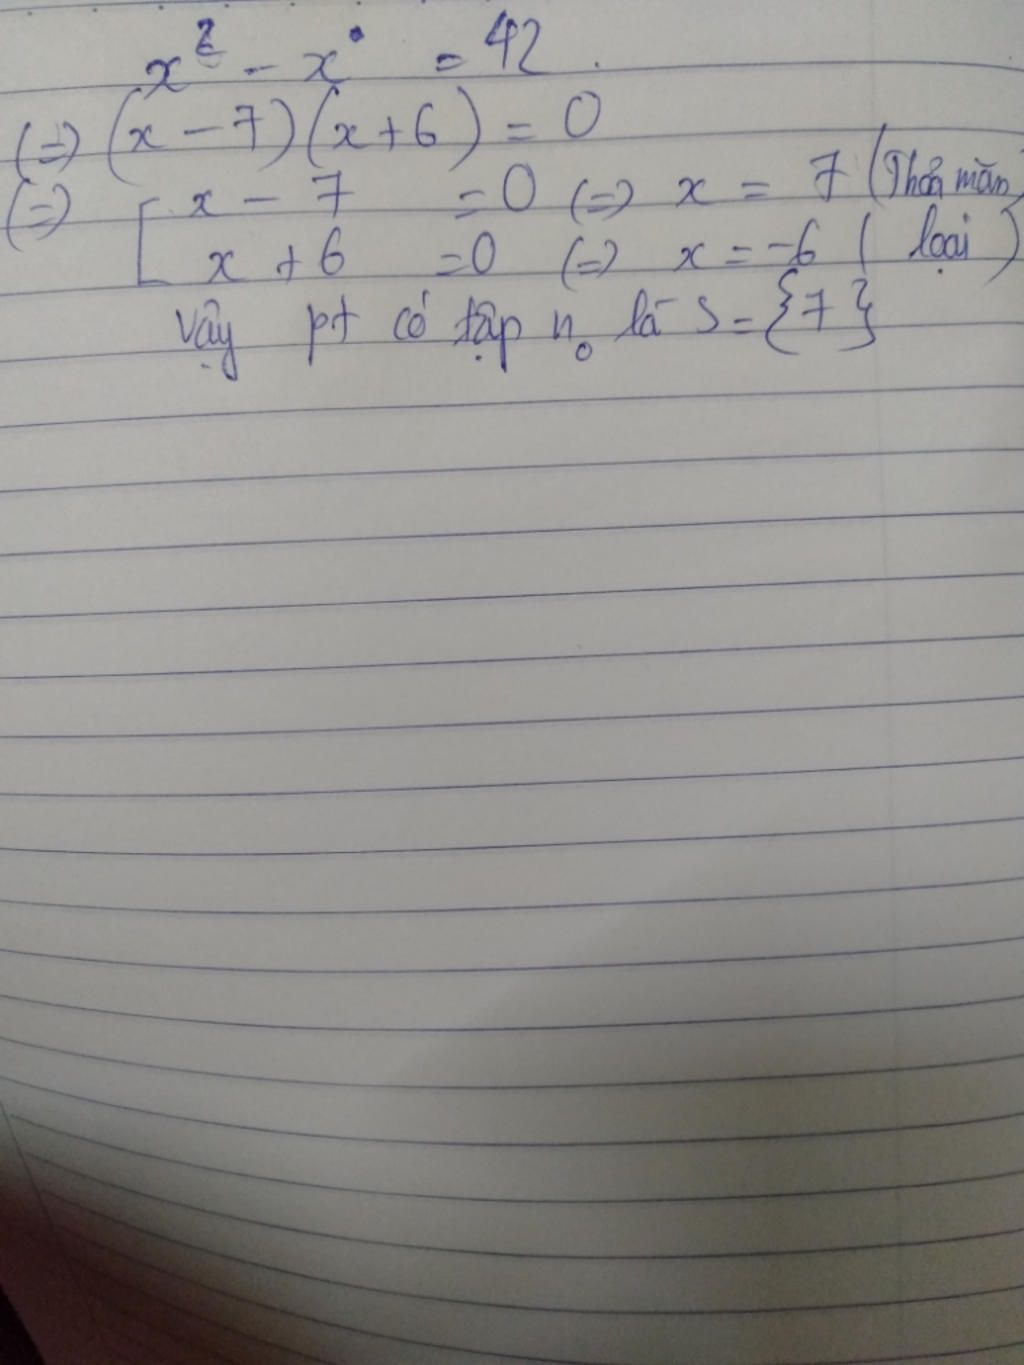 x² - x = 42.
(=) (x - 7)(x + 6) = 0
(=) [ x - 7 = 0 (=) x = 7 (Thỏa mãn)
x + 6 = 0 (=) x = -6 ( loại )
Vậy pt có tập n₀ là S = {7}